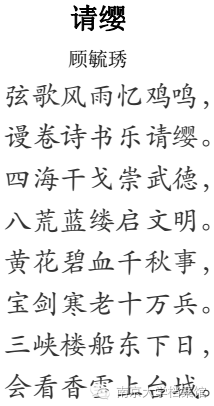 请缨
顾毓琇
弦歌风雨忆鸡鸣，
谩卷诗书乐请缨。
四海干戈崇武德，
八荒蓝缕启文明。
黄花碧血千秋事，
宝剑寒老十万兵。
三峡楼船东下日，
会看香雪上台城。
南京大学档案馆